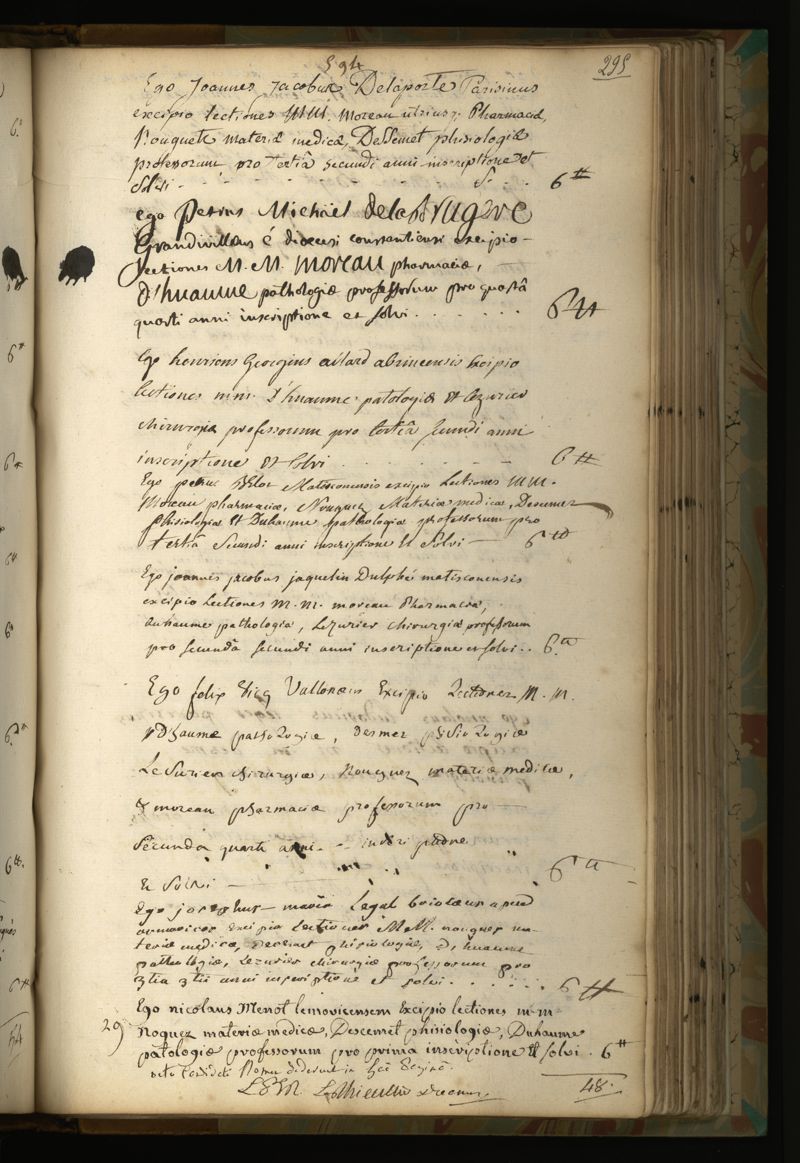 594
295
Ego Joannes Jacobus Delaporte Parisinus
excipio lectiones MM. Moreau utriusq; Pharmaciæ,
Nouguets materiæ medicæ, DesSemet phisiologiæ
professorum pro tertiâ secundi anni inscriptione et
Solvi . . . . 6 ₶
ego petrus Michaël delaBrugere
Grandivillæus é diœcesi constantiensi excipio
lectiones M. M. moreau pharmaciæ,
d'huaume pathologiæ professorum pro quartâ
quarti anni inscriptione et solvi . . . . . . 6 ₶
Ego henricus Georgius allard abrincensis Excipio
lectiones mm. d'huaume patologiæ et lezurier
chirurgiæ professorum pro tertiâ secundi anni
inscriptione et solvi . . . . 6 ₶
Ego petrus Belot Matisconensis excipio Lectiones MM.
Moreau pharmaciæ, Nouguez Materiæ medicæ, Descemet
phisiologiæ et Duhaume pathologiæ professorum pro
tertiâ Secundi anni inscriptione et Solvi — 6 ₶
Ego joannes jacobus jaquelin Dulphé matisconensis
excipio Lectiones M. M. moreau Pharmaciæ,
duhaume pathologiæ, Lezurier chirurgiæ professorum
pro secundâ secundi anni inscriptione et solvi . . 6 ₶
Ego felix Vallonæus Excipio Lectiones M. M.
Dhaumæ pathologiæ, desmet phisiologiæ
LeSurier chirurgiæ, Nouguez materiæ medicæ,
& moreau pharmaciæ professorum pro —
Secunda quarti anni inscriptione
Et Solvi — 6 ₶
Ego josephus — maria Legal briocæus apud
armoricos Excipio Lectiones MM. nouguez ma-
teriæ medicæ, descemet phisiologiæ, d'huaume
pathologiæ, Lezurier chirurgiæ professorum pro
3tia 3tii anni inscriptione et solvi . . . . . . 6 ₶
Ego nicolaus Menot lemovicensem Excipio lectiones m-m-
29 Noguez materiæ medicæ, Descemet phisiologiæ, Duhaume
patologiæ professorum pro prima inscriptione et solvi . 6 ₶
octo Candidati Nomen dederunt in hac Paginâ
L. P. F. R. LeThieullier decanus. 48.